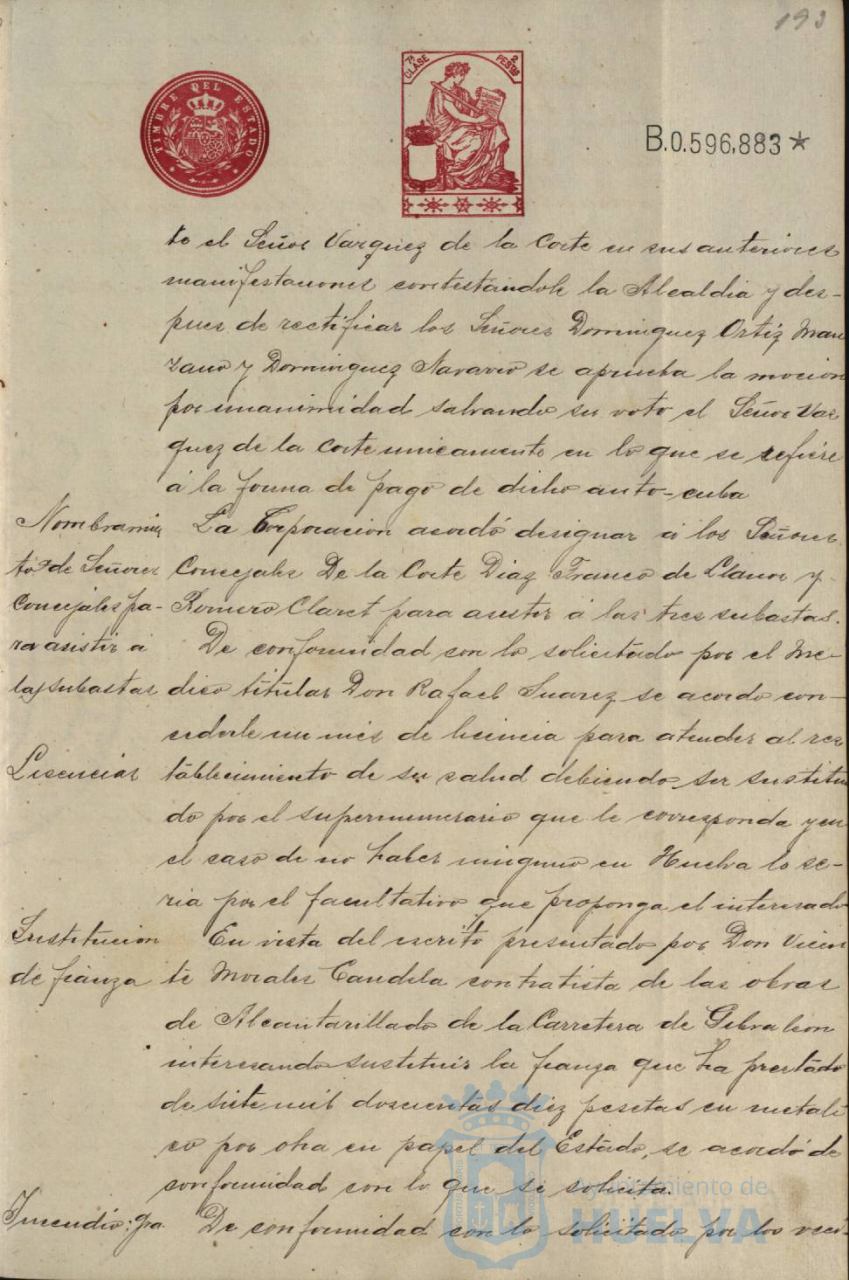 193
TIMBRE DEL ESTADO
7ª CLASE
2 PESTAS
B.0.596,883*
to el Señor Vazquez de la Corte en sus anteriores
manifestaciones contestándole la Alcaldia y des-
pues de rectificar los Señores Dominguez Ortiz Man
zano y Dominguez Navarro se aprueba la mocion
por unanimidad salvando su voto el Señor Vaz
quez de la Corte unicamente en lo que se refiere
á la forma de pago de dicho auto-cuba
Nombramien
to de Señores
Concejales pa-
ra asistir á
las subastas
La Corporacion acordó designar á los Señores
Concejales De la Corte Diaz Franco de Llanos y
Romero Claret para asistir á las tres subastas.
Lisencias
De conformidad con lo solicitado por el Me-
dico titular Don Rafael Suarez se acordo con-
cederle un mes de licencia para atender al res
tablecimiento de su salud debiendo ser sustitui
do por el supernumerario que le corresponda y en
el caso de no haber ninguno en Huelva lo se-
ria por el facultativo que proponga el interesado
Sustitucion
de fianza
En vista del escrito presentado por Don Vicen
te Morales Candela contratista de las obras
de Alcantarillado de la Carretera de Gibraleon
interesando sustituir la fianza que ha prestado
de siete mil doscientas diez pesetas en metali
co por otra en papel del Estado, se acordó de
conformidad con lo que se solicita.
Incendio: gra
De conformidad con lo solicitado por los veci-
Ayuntamiento de
HUELVA